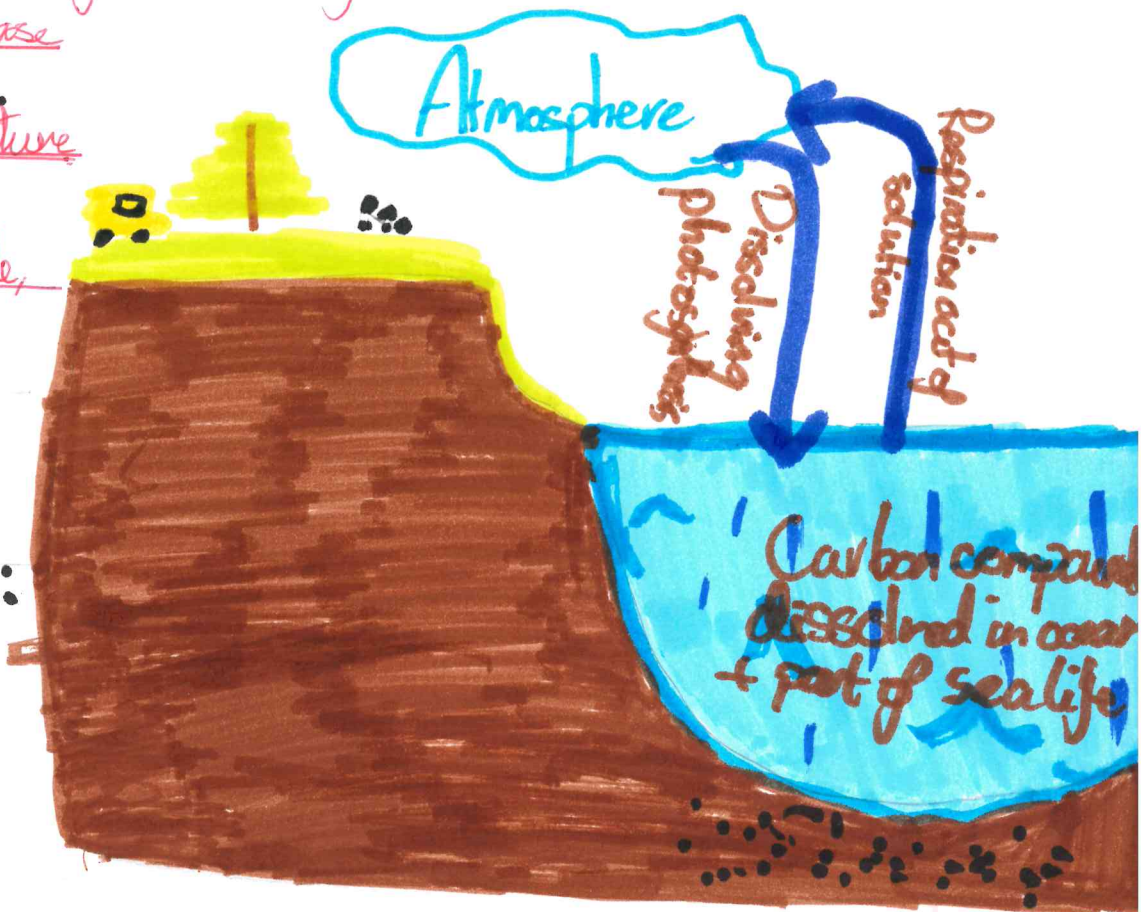 Atmosphere
Dissolving
photosynthesis
Respiration act of
solution
Carbon compound
dissolved in ocean
+ part of sea life